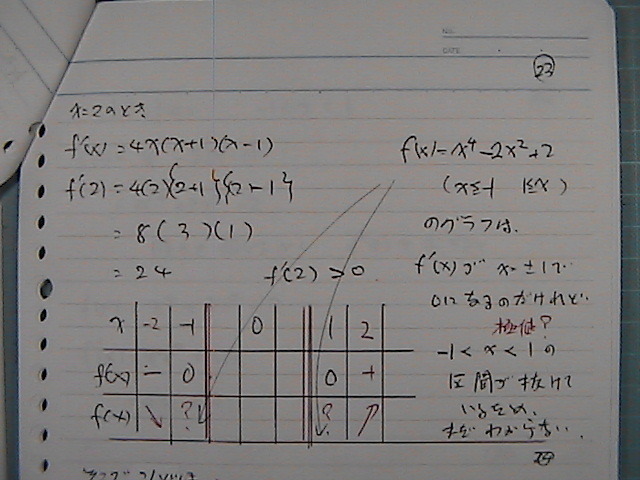 NO.
DATE
23
x=2のとき
f'(x) = 4x(x+1)(x-1)
f'(2) = 4(2){2+1}{2-1}
= 8(3)(1)
= 24 f'(2) > 0
x -2 -1 0 1 2
f'(x) − 0 0 +
f(x) ↘ ? ? ↗
f(x)=x⁴-2x²+2
(x≤-1 1≤x)
のグラフは、
f'(x)が x=±1で
0になるのだけれど、
極値?
-1<x<1の
区間が抜けて
いるため、
まだわからない。